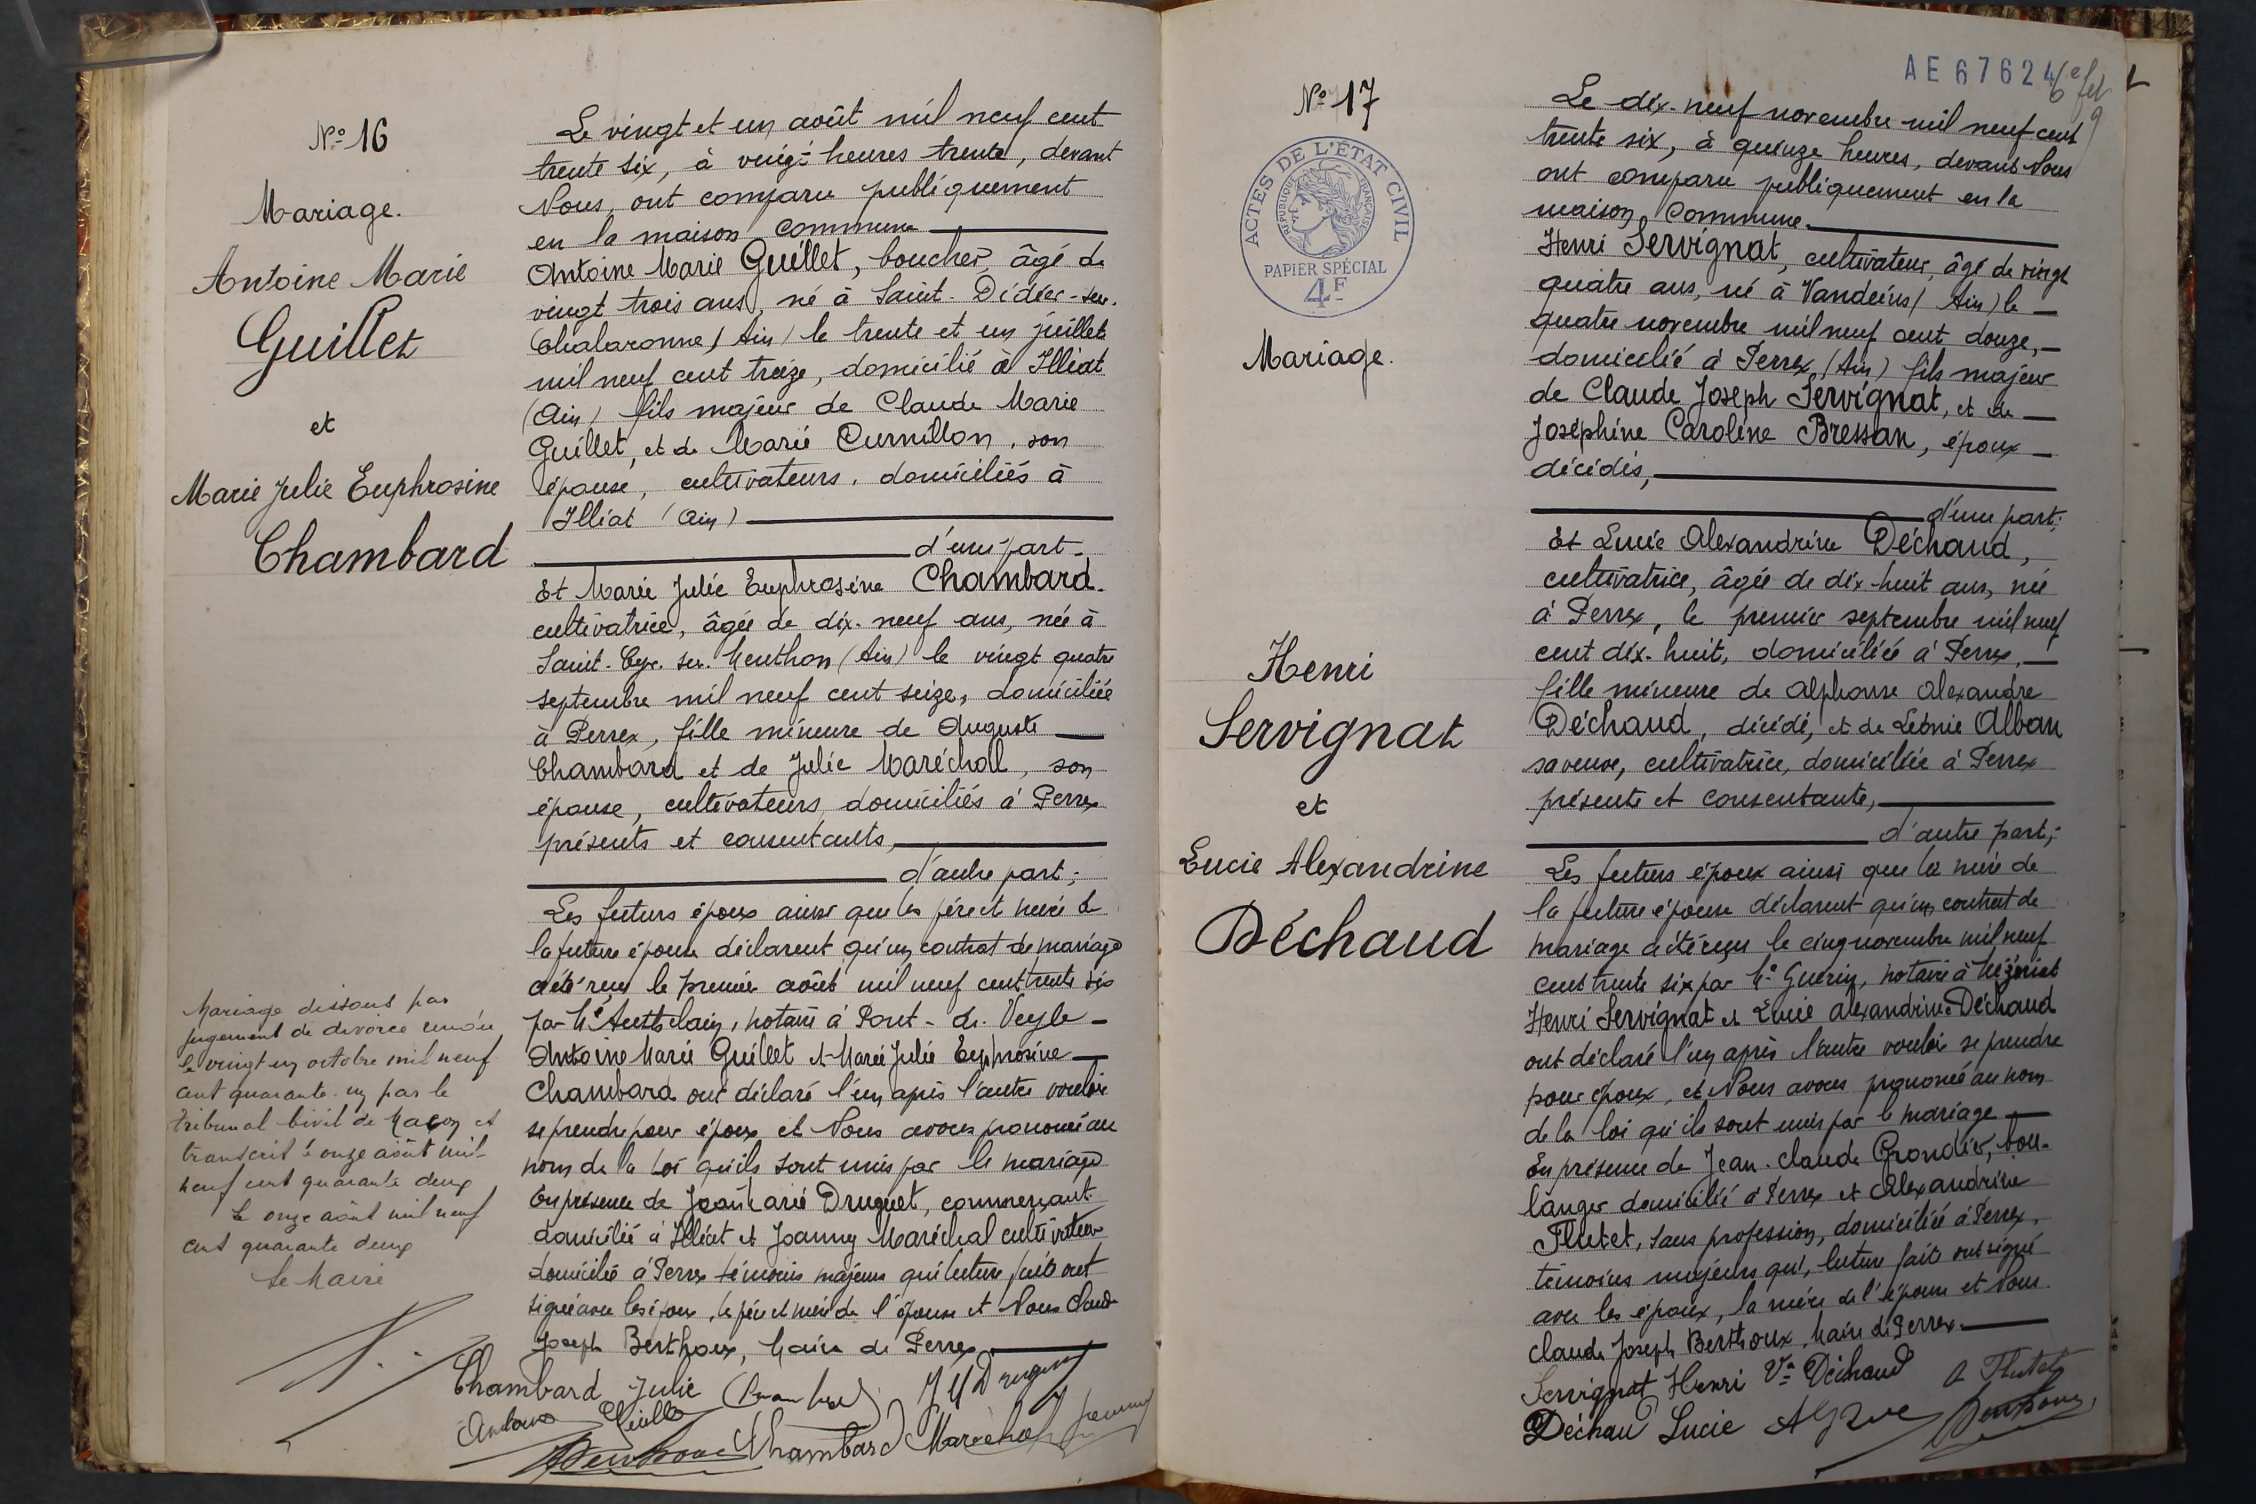 Nº 16
Mariage.
Antoine Marie
Guillet
et
Marie Julie Euphrosine
Chambard
Mariage dissous par
jugement de divorce rendu
le vingt un octobre mil neuf
cent quarante un par le
tribunal civil de Macon et
transcrit le onze août mil
neuf cent quarante deux
Le onze août mil neuf
cent quarante deux
Le Maire
Le vingt et un août mil neuf cent
trente six, à vingt heures trente, devant
Nous, ont comparu publiquement
en la maison commune
Antoine Marie Guillet, boucher, âgé de
vingt trois ans, né à Saint-Didier-sur-
Chalaronne (Ain) le trente et un juillet
mil neuf cent treize, domicilié à Illiat
(Ain) fils majeur de Claude Marie
Guillet, et de Marie Curnillon, son
épouse, cultivateurs, domiciliés à
Illiat (Ain)
d'une part-
Et Marie Julie Euphrosine Chambard.
cultivatrice, âgée de dix-neuf ans, née à
Saint-Cyr-sur-Menthon (Ain) le vingt quatre
septembre mil neuf cent seize, domiciliée
à Perrex, fille mineure de Auguste
Chambard et de Julie Maréchal, son
épouse, cultivateurs, domiciliés à Perrex
présents et consentants,
d'autre part;
Les futurs époux ainsi que les père et mère de
la future épouse déclarent qu'un contrat de mariage
a été reçu le premier août mil neuf cent trente six
par Me , notaire à Pont-de-Veyle-
Antoine Marie Guillet et Marie Julie Euphrosine
Chambard ont déclaré l'un après l'autre vouloir
se prendre pour époux et Nous avons prononcé au
nom de la loi qu'ils sont unis par le mariage
En présence de Jean Marie Druguet, commerçant
domicilié à Illiat et Joanny Maréchal cultivateur
domicilié à Perrex témoins majeurs qui lecture faite ont
signé avec les époux, le père et mère de l'épouse et Nous Claude
Joseph Berthoux, Maire de Perrex
Chambard Julie J M Druguet
Antoine Guillet
Chambard Maréchal Joanny
AE 67624
Nº 17
ACTES DE L'ÉTAT CIVIL
RÉPUBLIQUE FRANÇAISE
PAPIER SPÉCIAL
4F
Mariage.
Henri
Servignat
et
Lucie Alexandrine
Déchaud
Le dix-neuf novembre mil neuf cent
trente six, à quinze heures, devant Nous
ont comparu publiquement en la
maison commune.
Henri Servignat, cultivateur, âgé de vingt
quatre ans, né à Vandeins (Ain) le
quatre novembre mil neuf cent douze,
domicilié à Perrex (Ain) fils majeur
de Claude Joseph Servignat, et de
Joséphine Caroline Bressan, époux
décédés,
d'une part;
Et Lucie Alexandrine Déchaud,
cultivatrice, âgée de dix-huit ans, née
à Perrex, le premier septembre mil neuf
cent dix-huit, domiciliée à Perrex,
fille mineure de Alphonse Alexandre
Déchaud, décédé, et de Léonie Alban
sa veuve, cultivatrice, domiciliée à Perrex
présente et consentante,
d'autre part;
Les futurs époux ainsi que la mère de
la future épouse déclarent qu'un contrat de
mariage a été reçu le cinq novembre mil neuf
cent trente six par Me Guerin, notaire à Mézériat
Henri Servignat et Lucie Alexandrine Déchaud
ont déclaré l'un après l'autre vouloir se prendre
pour époux, et Nous avons prononcé au nom
de la loi qu'ils sont unis par le mariage
En présence de Jean-Claude Grondier, bou-
langer domicilié à Perrex et Alexandrine
Flutet, sans profession, domiciliée à Perrex,
témoins majeurs qui, lecture faite ont signé
avec les époux, la mère de l'épouse et Nous
Claude Joseph Berthoux, Maire de Perrex.
Servignat Henri Ve Déchaud A Flutet
Déchau Lucie Berthoux